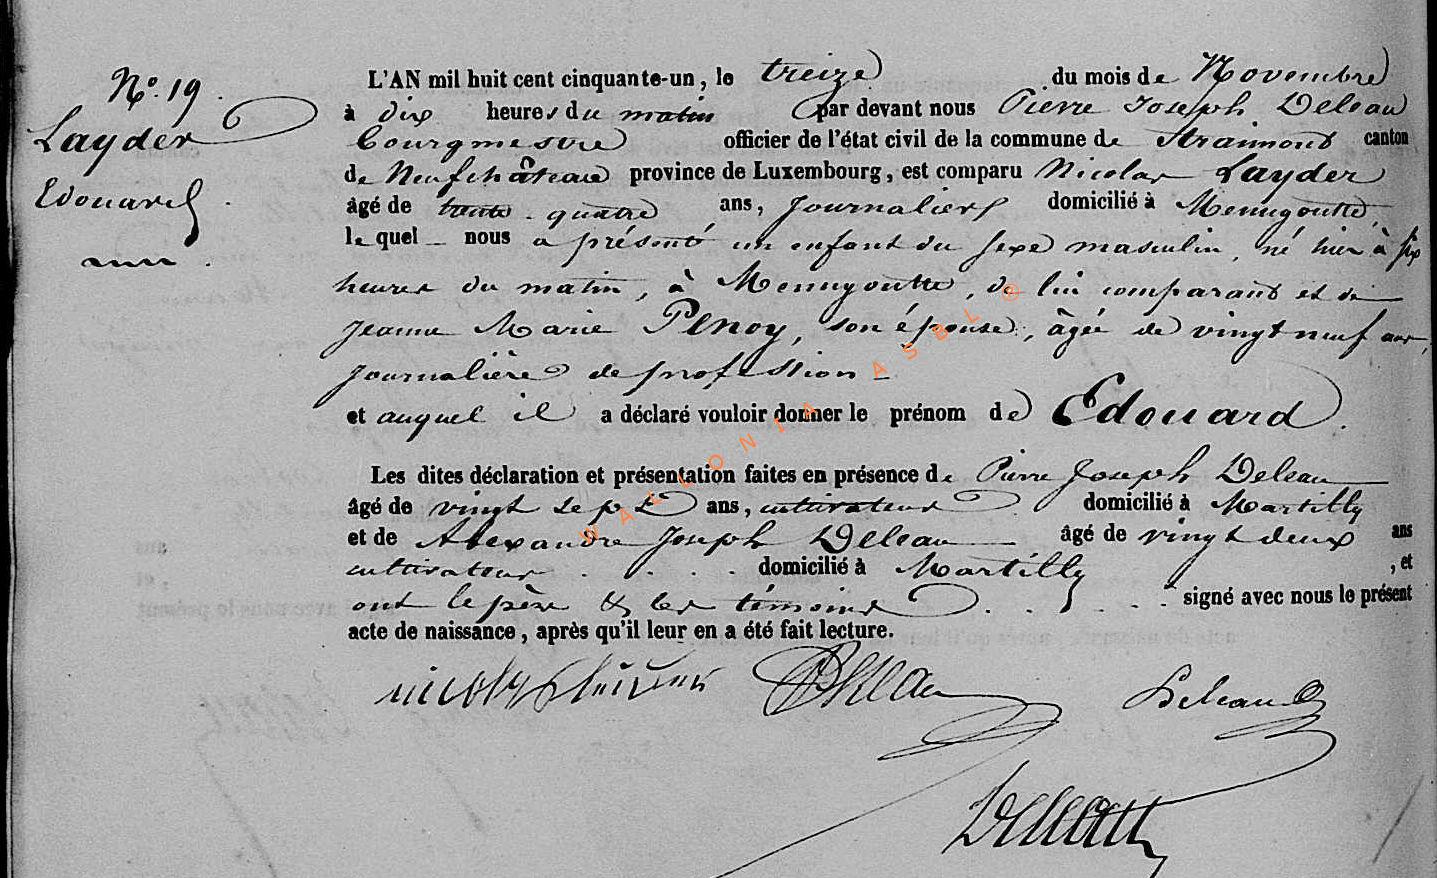 N.º 19.
Layder
Edouard.
L'AN mil huit cent cinquante-un, le treize du mois de Novembre
à dix heures du matin par devant nous Pierre Joseph Deleau
bourgmestre officier de l'état civil de la commune de Straimont canton
de Neufchâteau province de Luxembourg, est comparu Nicolas Layder
âgé de trente-quatre ans, journalier domicilié à Menugoutte,
lequel nous a présenté un enfant du sexe masculin, né hier à six
heures du matin, à Menugoutte, de lui comparant et de
Jeanne Marie Penoy, son épouse, âgée de vingt neuf ans,
journalière de profession
et auquel il a déclaré vouloir donner le prénom de Edouard.
Les dites déclaration et présentation faites en présence de Pierre Joseph Deleau
âgé de vingt sept ans, cultivateur domicilié à Martilly
et de Alexandre Joseph Deleau âgé de vingt deux ans
cultivateur domicilié à Martilly, et
ont le père & les témoins signé avec nous le présent
acte de naissance, après qu'il leur en a été fait lecture.
Deleau Deleau
Deleau
WALLONIA ASBL ®